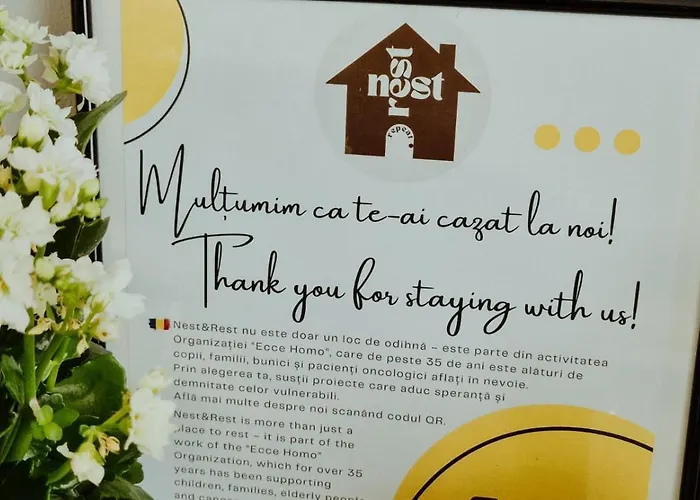 nest
rest
repeat
Mulțumim ca te-ai cazat la noi!
Thank you for staying with us!
Nest&Rest nu este doar un loc de odihnă – este parte din activitatea
Organizației "Ecce Homo", care de peste 35 de ani este alături de
copii, familii, bunici și pacienți oncologici aflați în nevoie.
Prin alegerea ta, susții proiecte care aduc speranță și
demnitate celor vulnerabili.
Află mai multe despre noi scanând codul QR.
Nest&Rest is more than just a
place to rest – it is part of the
work of the "Ecce Homo"
Organization, which for over 35
years has been supporting
children, families, elderly people